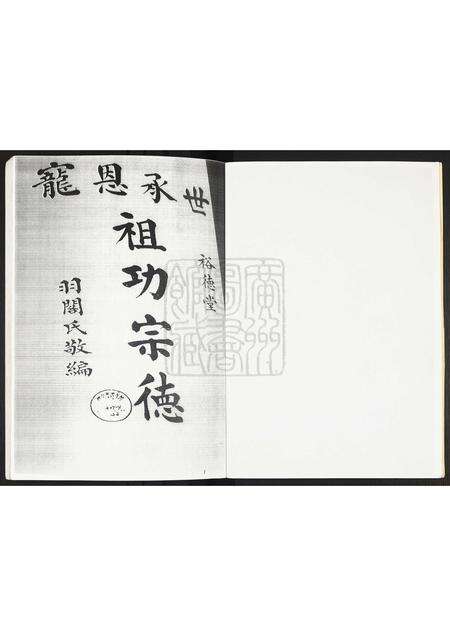 世承恩寵
裕德堂
祖功宗德
羽閣氏敬編
廣州圖書館藏
1